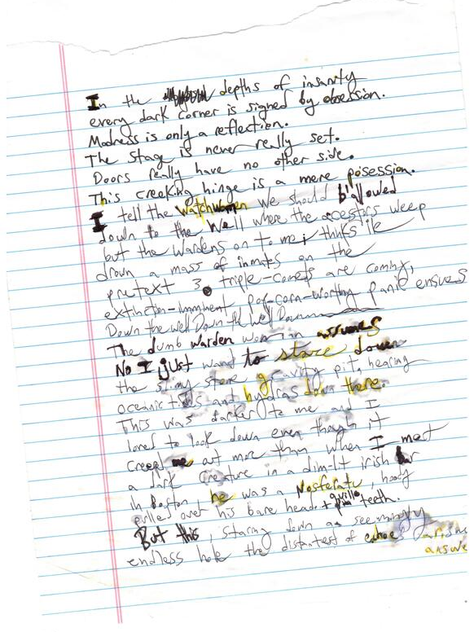 In the depths of insanity
every dark corner is signed by obsession.
Madness is only a reflection.
The stage is never really set.
Doors really have no other side.
This creeking hinge is a mere posession.
I tell the watchwomen we should b allowed
down to the well where the weep
but the wardens on to me; thinks ile
drown a mass of inmats on the
pretext 3 triple-comets are coming,
extinction-imminent Pop-corn-worthy panic ensues
Down the well Down the well Down
The dumb warden woman assumes
No I just want to stare down
the gravity pit, hearing
oceanic down there
This was darker to me and I
loved to look down even though it
creeped me out more than when I met
a dark creature in a dim-lit irish bar
in Boston he was a Nosferatu, hoody
pulled over his bare head + teeth.
But this, staring down a seemingly
endless hole the distantest of echoe
answe